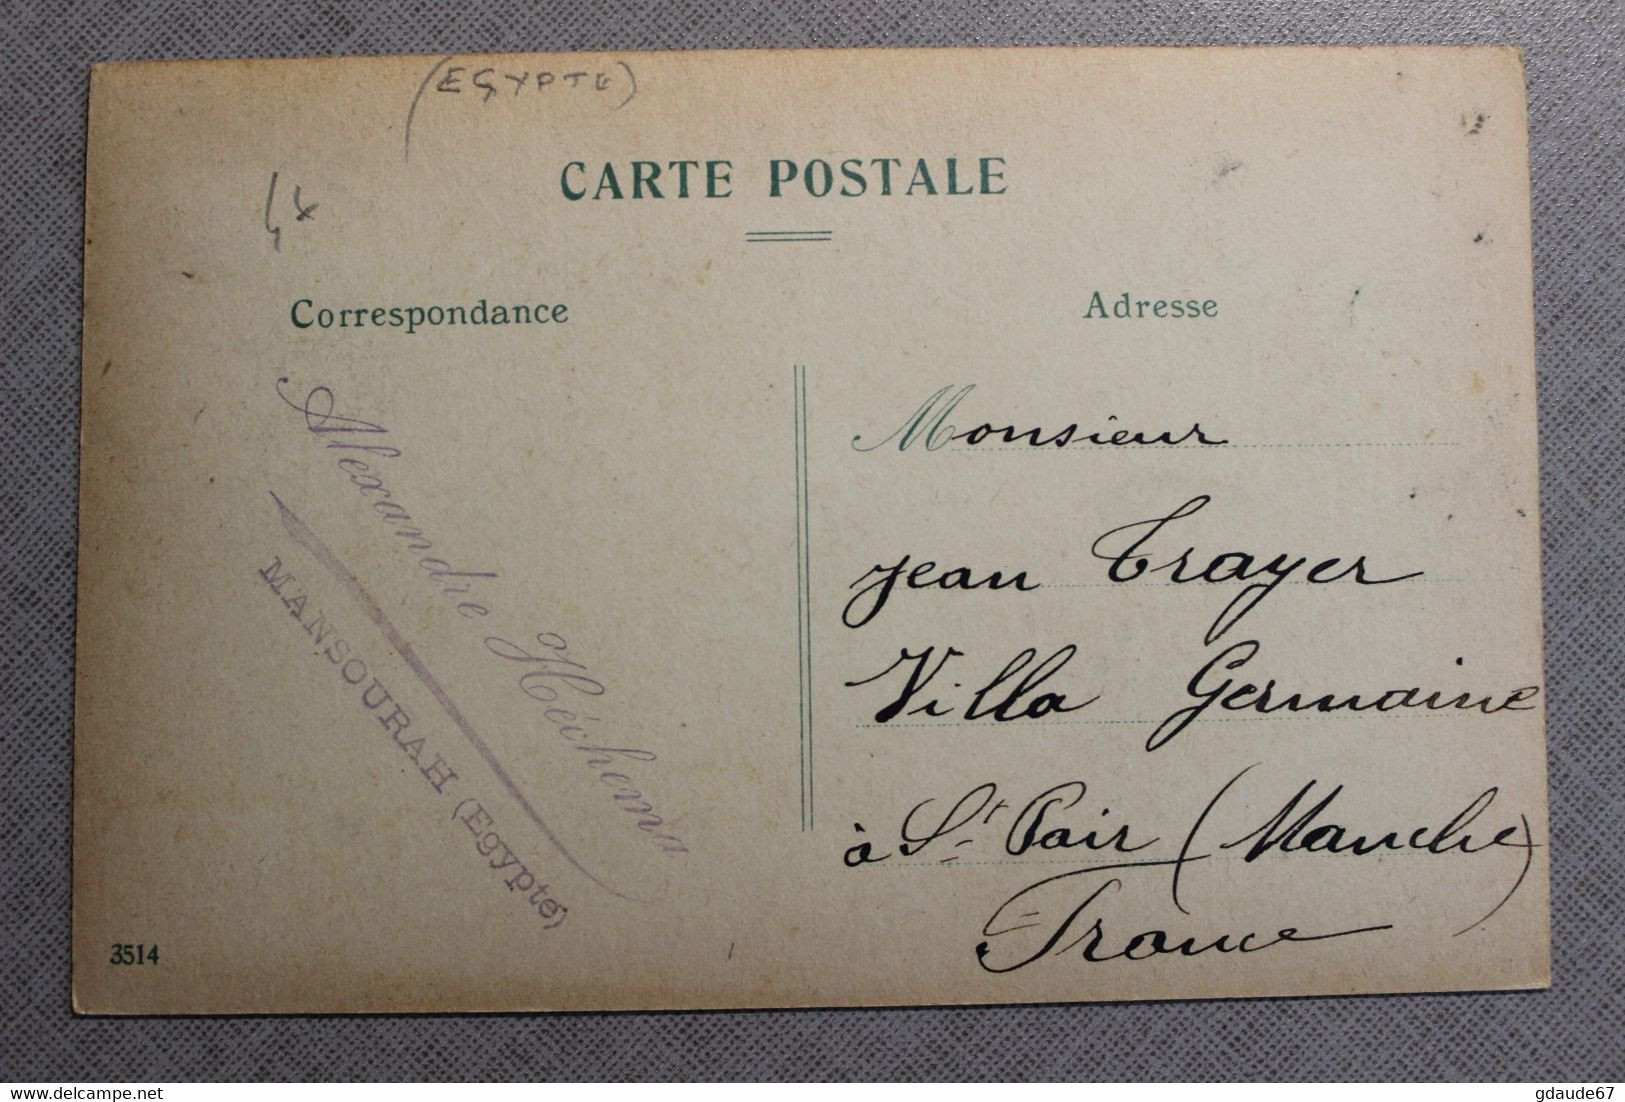 (EGYPTE)
CARTE POSTALE
Correspondance
Adresse
Alexandre Héchema
MANSOURAH (Egypte)
Monsieur
Jean Trayer
Villa Germaine
à St Pair (Manche)
France
3514
delcampe.net
gdaude67